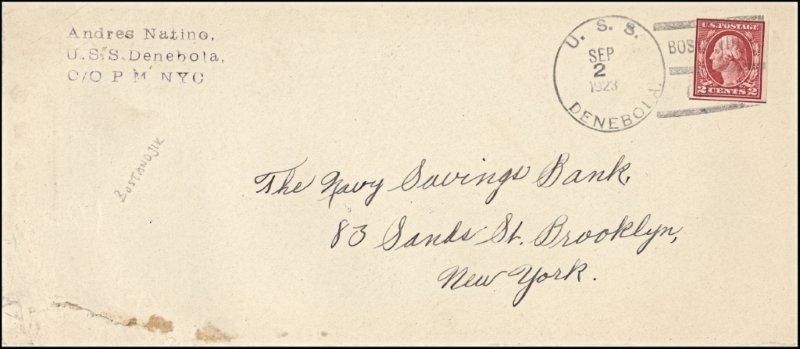 Andres Natino,
U.S.S.Denebola,
C/O P M NYC
U. S. S.
SEP
2
1923
DENEBOLA.
BOS
U.S. POSTAGE
2 CENTS 2
BOSTANDJIK
The Navy Savings Bank,
83 Sands St. Brooklyn,
New York.